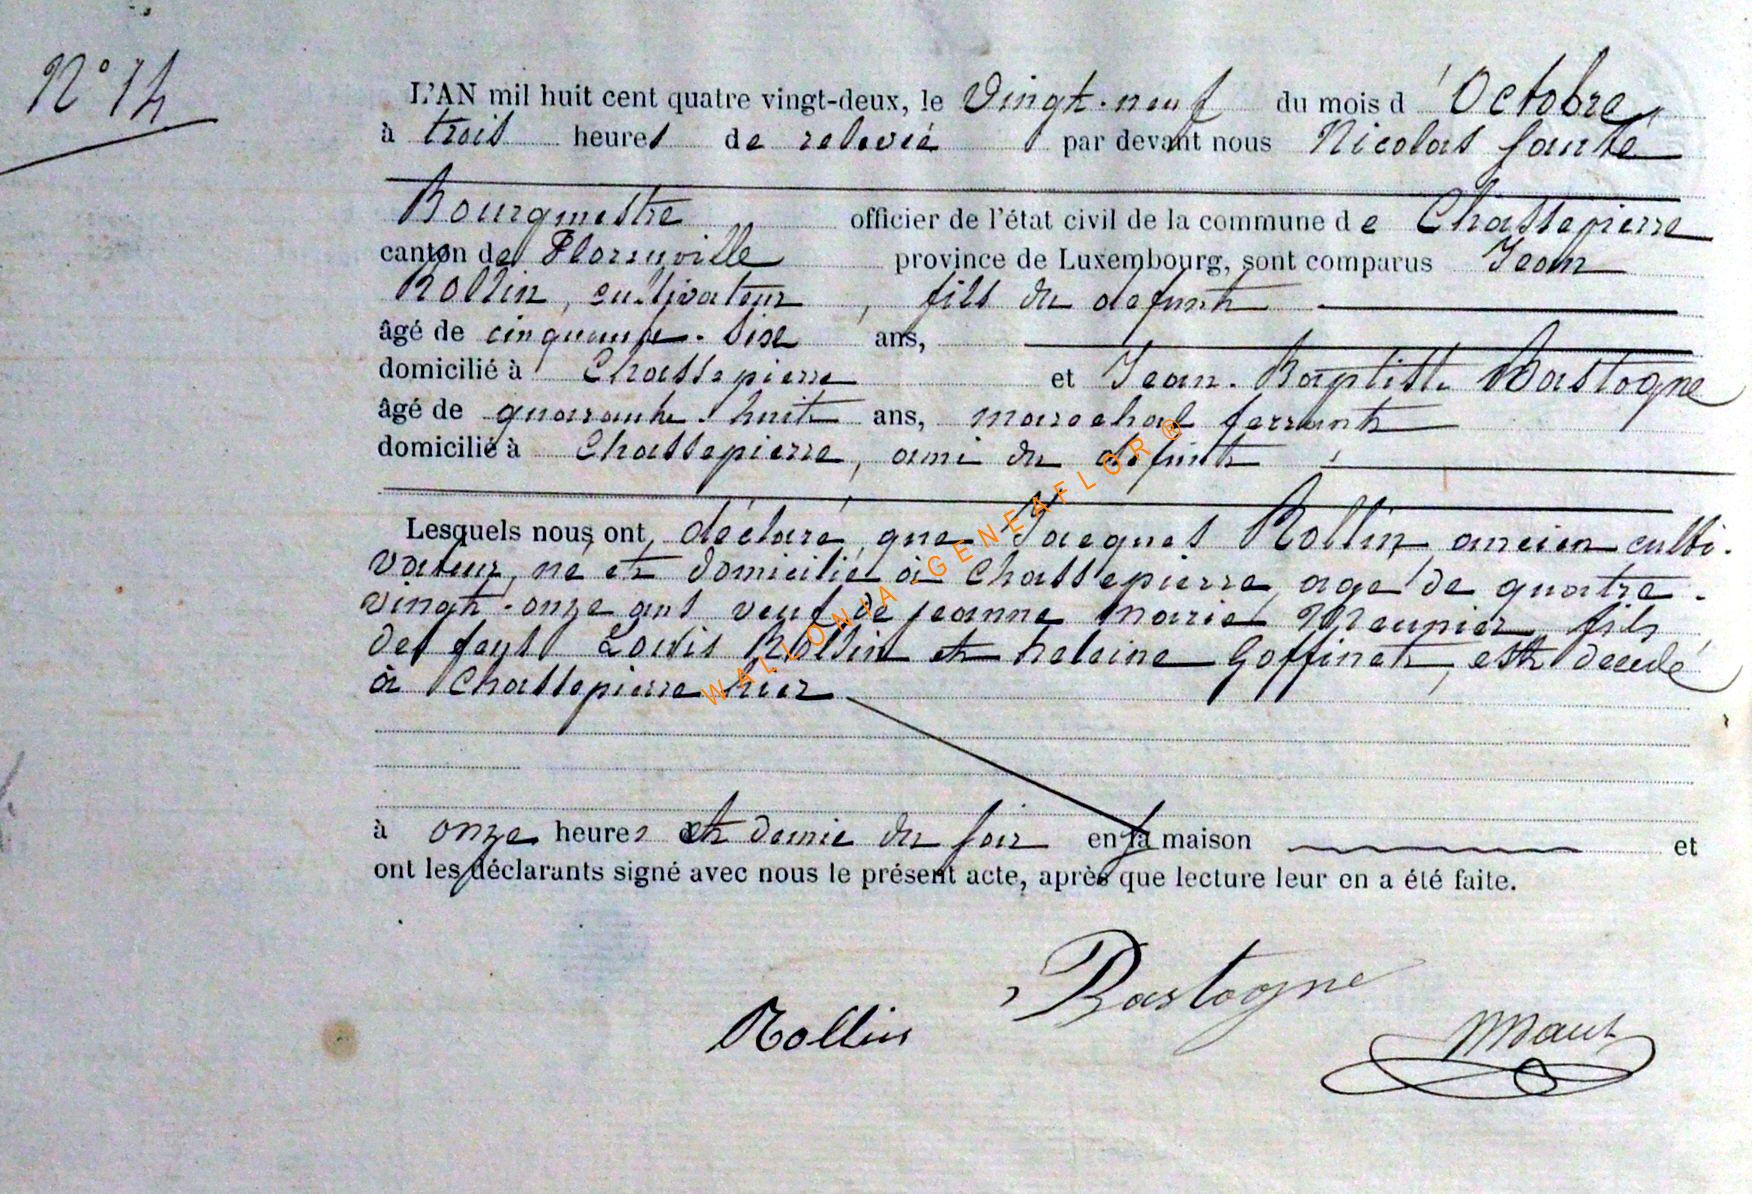 N° 14
L'AN mil huit cent quatre vingt-deux, le Vingt-neuf du mois d'Octobre,
à trois heures de relevée par devant nous Nicolas
Bourgmestre officier de l'état civil de la commune de Chassepierre
canton de Florenville province de Luxembourg, sont comparus Jean
Rollin, cultivateur, fils du defunt
âgé de cinquante-six ans,
domicilié à Chassepierre et Jean-Baptiste Bastogne
âgé de quarante-huit ans, marechal ferrant
domicilié à Chassepierre, ami du defunt,
Lesquels nous ont déclaré que Jacques Rollin, ancien culti-
vateur, né et domicilié à Chassepierre, agé de quatre-
vingt-onze ans veuf de jeanne Marie Meunier, fils
de feus Louis Rollin et heleine Goffinet, est decedé
à Chassepierre hier
à onze heures et demie du soir en sa maison et
ont les déclarants signé avec nous le présent acte, après que lecture leur en a été faite.
Bastogne
Rollin
WALLONIA GENEAFLOR ®